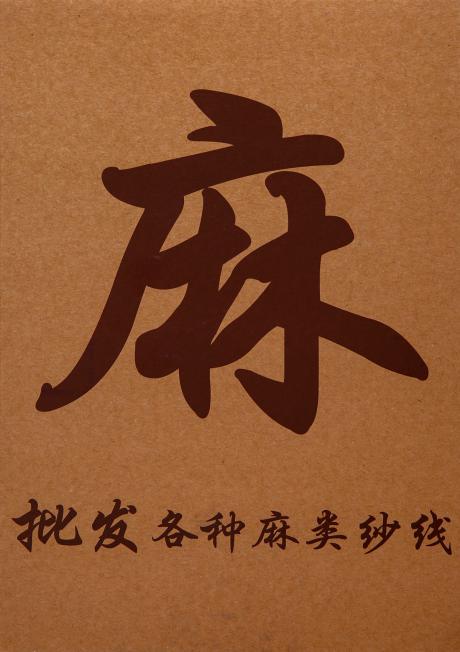 麻
批发各种麻类纱线